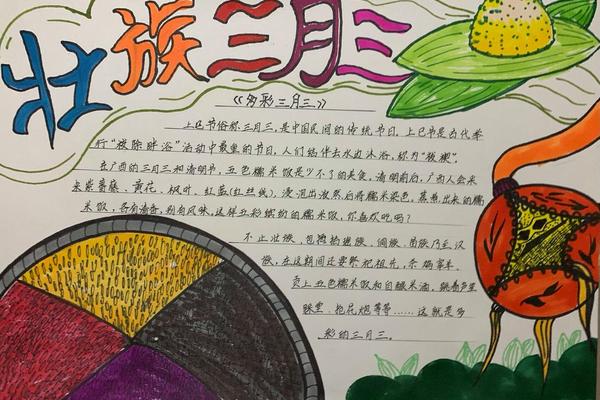 壮族三月三
《多彩三月三》
上巳节俗称三月三,是中国民间的传统节日,上巳节是古代举
行“祓除畔浴”活动中最重的节日,人们结伴去水边沐浴,称为“祓禊”。
在广西的三月三和清明节,五色糯米饭是少不了的美食,清明前后,广西人会采
来紫蕃藤、黄花、枫叶、红蓝(红丝线),浸泡出液然后将糯米染色,蒸煮出来的糯
米饭,各有清香,别有风味,这样五彩缤纷的糯米饭,你喜欢吃吗?
不止壮族、包括仡佬族、侗族、苗族乃至汉
族,在这期间还要祭祀祖先,杀鸡宰羊、
贡上五色糯米饭和自酿米酒,跳
抢花炮等等……这就是多
彩的三月三。